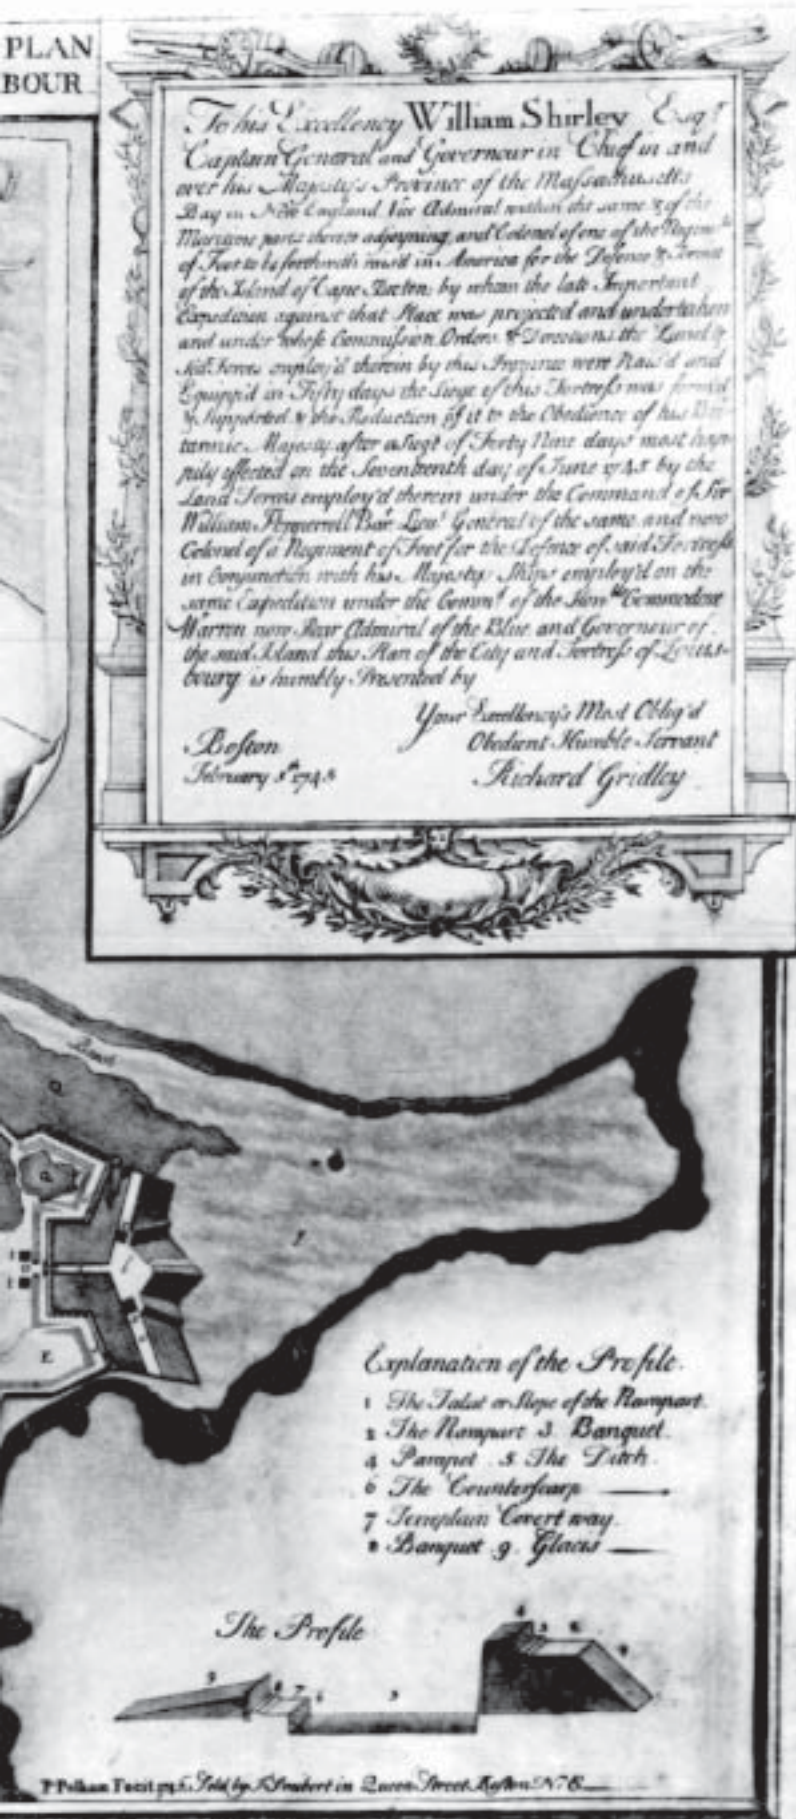 PLAN
BOUR
To his Excellency William Shirley Esqr.
Captain General and Governour in Chief in and
over his Majesty's Province of the Massachusetts
Bay in New England Vice Admiral within the same & of the
Maritime parts thereto adjoyning and Colonel of one of the Regimts
of Foot to be forthwith rais'd in America for the Defence &
of the Island of Cape Breton; by whom the late Important
Expedition against that Place was projected and undertaken
and under whose Commission Orders & Directions the Land &
Sea Forces employ'd therein by this Province were Rais'd and
Equipp'd in Fifty days the Siege of this Fortress was form'd
& Supported & the Reduction of it to the Obedience of his Bri-
tannic Majesty after a Siege of Forty Nine days most hap-
pily effected on the Seventeenth day of June 1745 by the
Land Forces employ'd therein under the Command of Sir
William Pepperrell Bar. Lieut. General of the same and now
Colonel of a Regiment of Foot for the Defence of said Fortress
in Conjunction with his Majestys Ships employ'd on the
same Expedition under the Comm.d of the Honble Commodore
Warren now Rear Admiral of the Blue and Governour of
the said Island this Plan of the City and Fortress of Louis-
bourg is humbly Presented by
Your Excellency's Most Oblig'd
Obedient Humble Servant
Boston
February 1745
Richard Gridley
E
Explanation of the Profile.
1 The Talut or Slope of the Rampart.
2 The Rampart 3 Banquet.
4 Parapet 5 The Ditch.
6 The Counterscarp
7 Terreplain Covert way.
8 Banquet 9 Glacis
The Profile
P. Pelham Fecit Sold by J. Smibert in Queen Street Boston N. E.